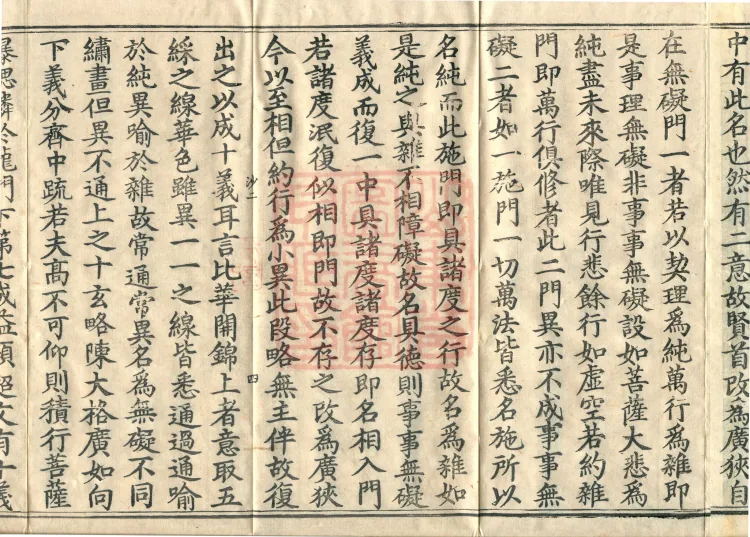 中有此名也然有二意故賢首改為廣狹自
在無礙門一者若以契理為純萬行為雜即
是事理無礙非事事無礙設如菩薩大悲為
純盡未來際唯見行悲餘行如虛空若約雜
門即萬行俱修者此二門異亦不成事事無
礙二者如一施門一切萬法皆悉名施所以
名純而此施門即具諸度之行故名為雜如
是純之與雜不相障礙故名具德則事事無礙
義成而復一中具諸度諸度存即名相入門
若諸度泯復似相即門故不存之改為廣狹
今以至相但約行為小異此段略無主伴故復
出之以成十義耳言比華開錦上者意取五
綵之線華色雖異一一之線皆悉通過通喻
於純異喻於雜故常通常異名為無礙不同
繡畫但異不通上之十玄略陳大格廣如向
下義分齊中疏若夫髙不可仰則積行菩薩
暴腮鱗於龍門下第七成益頓超文有十義
四